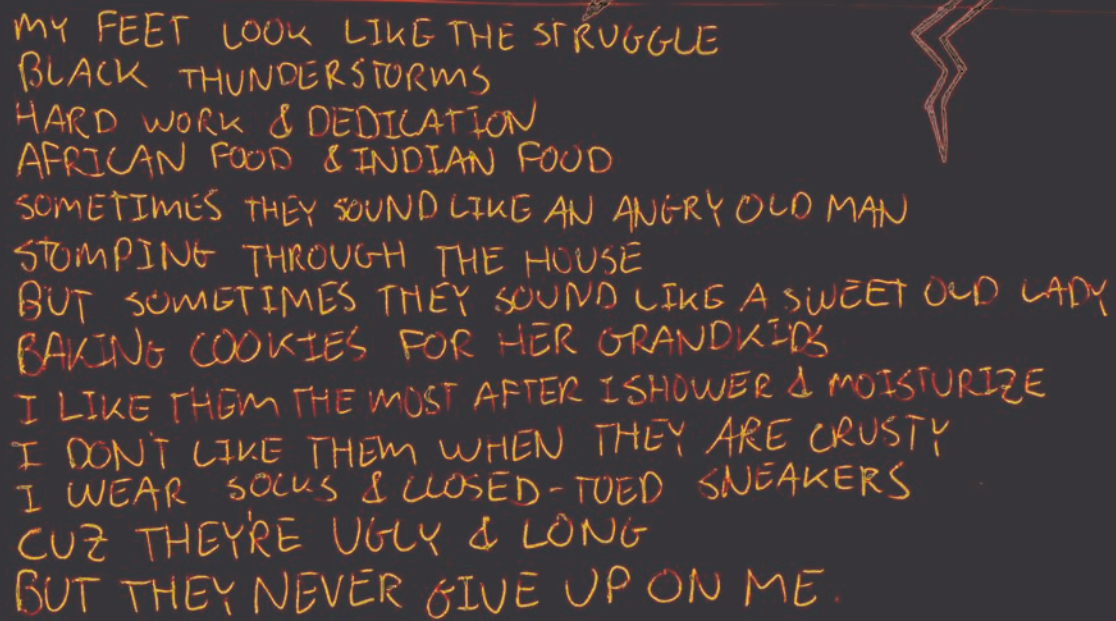 MY FEET LOOK LIKE THE STRUGGLE
BLACK THUNDERSTORMS
HARD WORK & DEDICATION
AFRICAN FOOD & INDIAN FOOD
SOMETIMES THEY SOUND LIKE AN ANGRY OLD MAN
STOMPING THROUGH THE HOUSE
BUT SOMETIMES THEY SOUND LIKE A SWEET OLD LADY
BAKING COOKIES FOR HER GRANDKIDS
I LIKE THEM THE MOST AFTER I SHOWER & MOISTURIZE
I DON'T LIKE THEM WHEN THEY ARE CRUSTY
I WEAR SOCKS & CLOSED-TOED SNEAKERS
CUZ THEY'RE UGLY & LONG
BUT THEY NEVER GIVE UP ON ME.